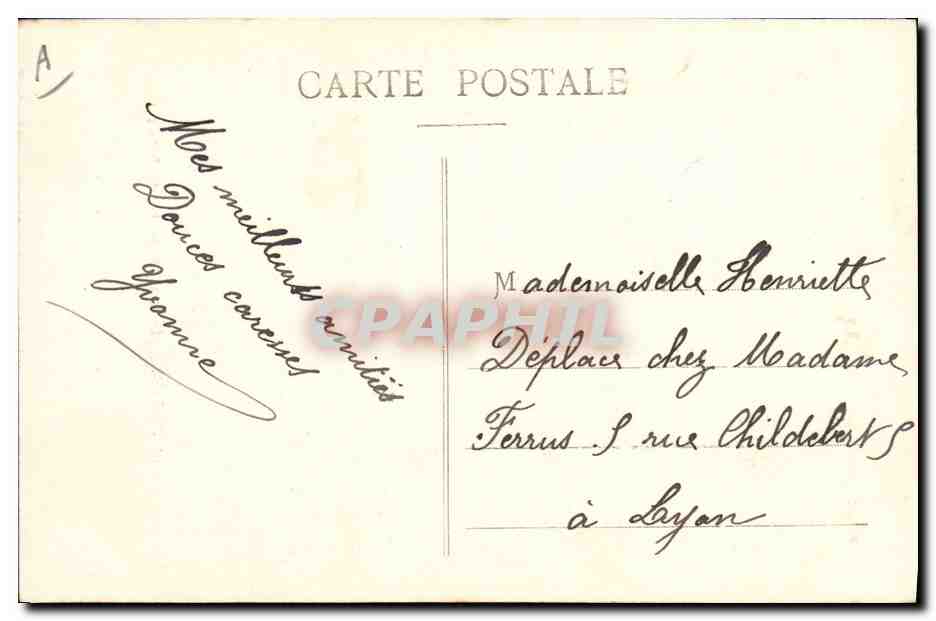 A
CARTE POSTALE
Mes meilleures amitiés
Douces caresses
Yvonne
Mademoiselle Henriette
Déplace chez Madame
Ferrus 5 rue Childebert 5
à Lyon
CPAPHIL